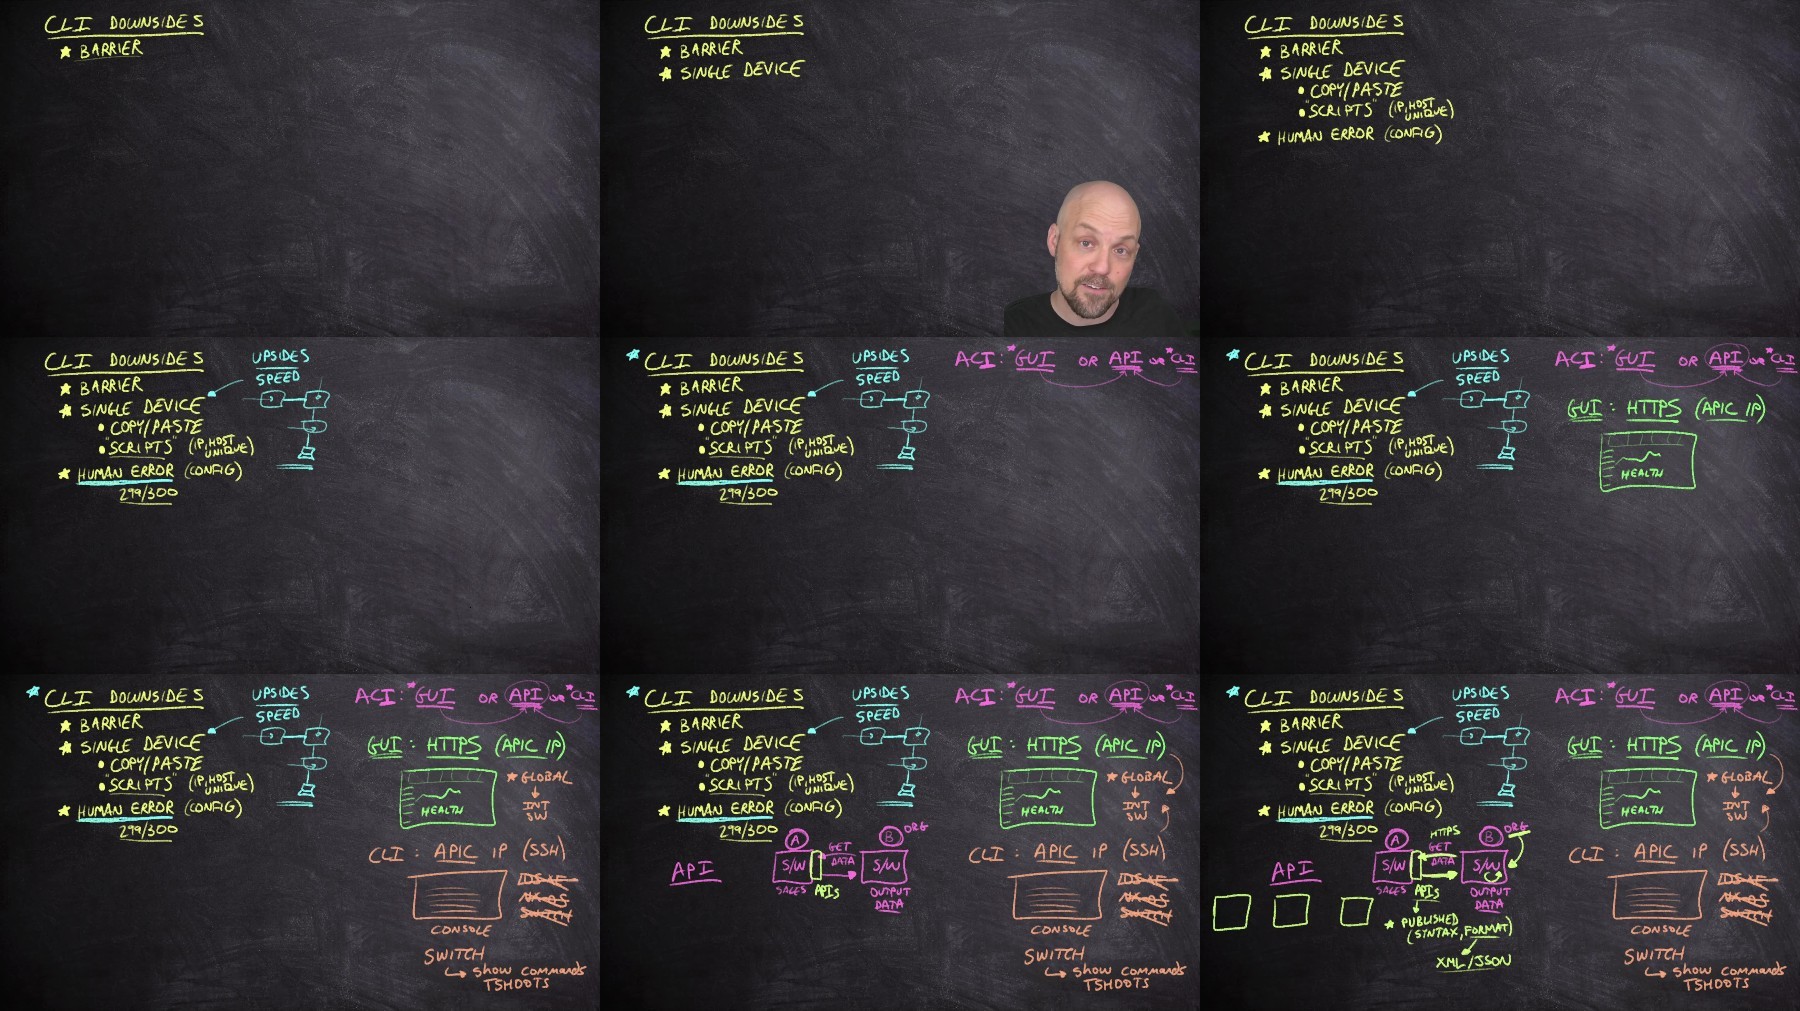 CLI DOWNSIDES
★ BARRIER
CLI DOWNSIDES
★ BARRIER
★ SINGLE DEVICE
CLI DOWNSIDES
★ BARRIER
★ SINGLE DEVICE
• COPY/PASTE
• "SCRIPTS" (IP, HOST UNIQUE)
★ HUMAN ERROR (CONFIG)
CLI DOWNSIDES
★ BARRIER
★ SINGLE DEVICE
• COPY/PASTE
• "SCRIPTS" (IP, HOST UNIQUE)
★ HUMAN ERROR (CONFIG)
299/300
UPSIDES
SPEED
★ CLI DOWNSIDES
★ BARRIER
★ SINGLE DEVICE
• COPY/PASTE
• "SCRIPTS" (IP, HOST UNIQUE)
★ HUMAN ERROR (CONFIG)
299/300
UPSIDES
SPEED
ACI: *GUI OR API OR *CLI
★ CLI DOWNSIDES
★ BARRIER
★ SINGLE DEVICE
• COPY/PASTE
• "SCRIPTS" (IP, HOST UNIQUE)
★ HUMAN ERROR (CONFIG)
299/300
UPSIDES
SPEED
ACI: *GUI OR API OR *CLI
GUI: HTTPS (APIC IP)
HEALTH
★ CLI DOWNSIDES
★ BARRIER
★ SINGLE DEVICE
• COPY/PASTE
• "SCRIPTS" (IP, HOST UNIQUE)
★ HUMAN ERROR (CONFIG)
299/300
UPSIDES
SPEED
ACI: *GUI OR API OR *CLI
GUI: HTTPS (APIC IP)
HEALTH
★ GLOBAL
INT
SW
CLI: APIC IP (SSH)
CONSOLE
SWITCH
SHOW COMMANDS
TSHOOTS
★ CLI DOWNSIDES
★ BARRIER
★ SINGLE DEVICE
• COPY/PASTE
• "SCRIPTS" (IP, HOST UNIQUE)
★ HUMAN ERROR (CONFIG)
299/300
UPSIDES
SPEED
API
A
S/W
SALES
APIs
GET
DATA
B
ORG
S/W
OUTPUT
DATA
ACI: *GUI OR API OR *CLI
GUI: HTTPS (APIC IP)
HEALTH
★ GLOBAL
INT
SW
CLI: APIC IP (SSH)
CONSOLE
SWITCH
SHOW COMMANDS
TSHOOTS
★ CLI DOWNSIDES
★ BARRIER
★ SINGLE DEVICE
• COPY/PASTE
• "SCRIPTS" (IP, HOST UNIQUE)
★ HUMAN ERROR (CONFIG)
299/300
UPSIDES
SPEED
API
A
S/W
SALES
APIs
HTTPS
GET
DATA
B
ORG
S/W
OUTPUT
DATA
★ PUBLISHED
(SYNTAX, FORMAT)
XML/JSON
ACI: *GUI OR API OR *CLI
GUI: HTTPS (APIC IP)
HEALTH
★ GLOBAL
INT
SW
CLI: APIC IP (SSH)
CONSOLE
SWITCH
SHOW COMMANDS
TSHOOTS